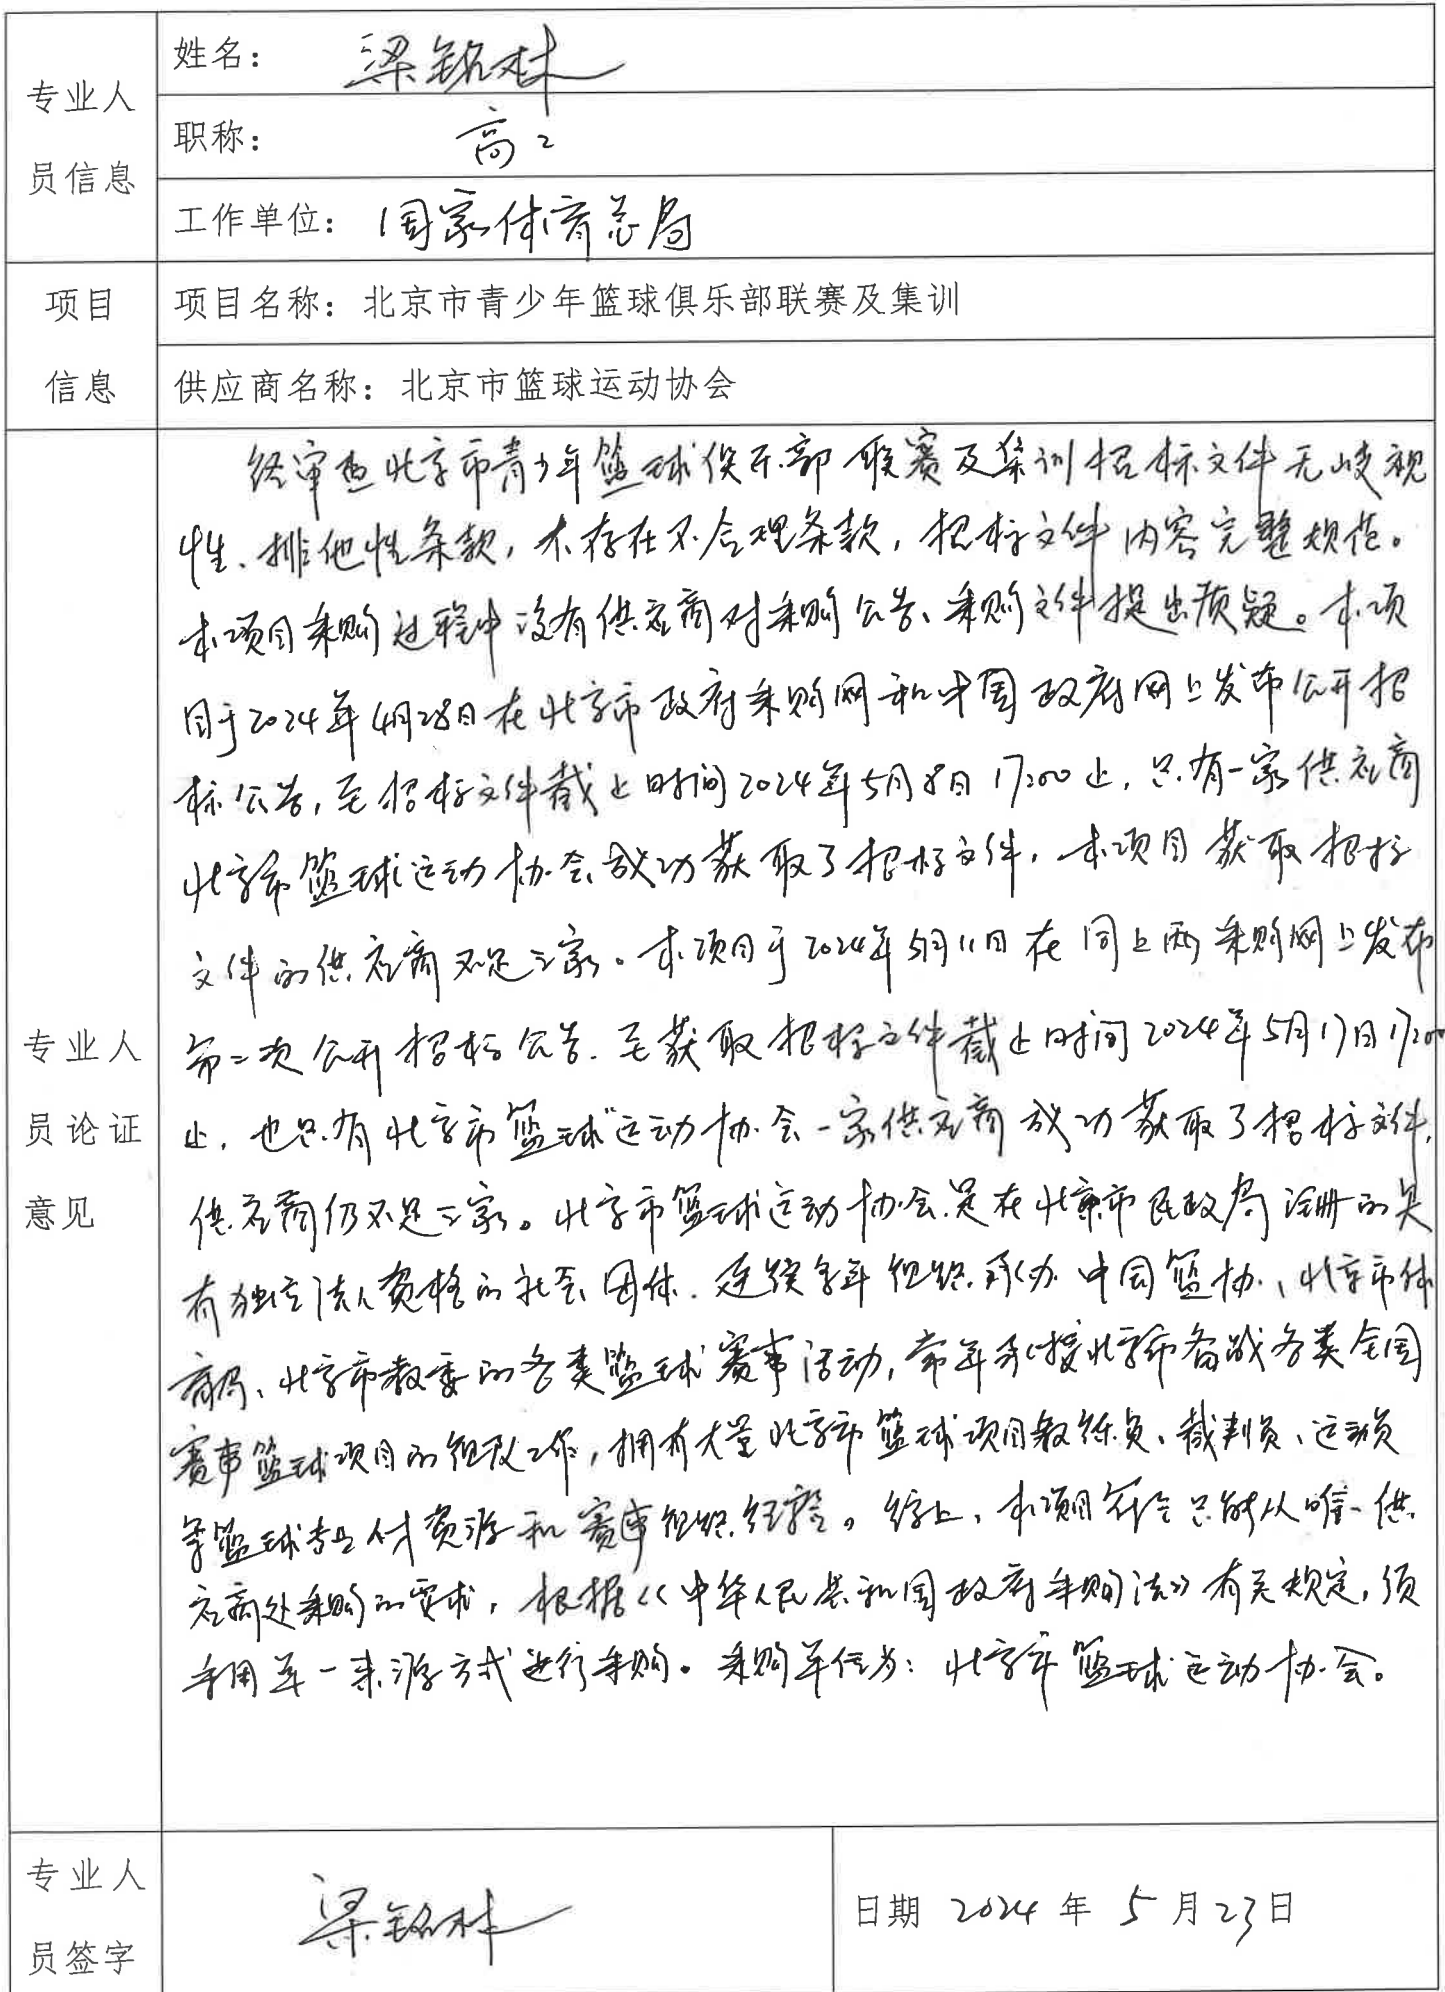 专业人员信息
姓名： 梁铭林
职称： 高工
工作单位： 国家体育总局
项目信息
项目名称：北京市青少年篮球俱乐部联赛及集训
供应商名称：北京市篮球运动协会
专业人员论证意见
经审查北京市青少年篮球俱乐部联赛及集训招标文件无歧视
性、排他性条款，不存在不合理条款，招标文件内容完整规范。
本项目采购过程中没有供应商对采购公告、采购文件提出质疑。本项
目于2024年4月28日在北京市政府采购网和中国政府网上发布公开招
标公告，至招标文件截止时间2024年5月8日17:00止，只有一家供应商
北京市篮球运动协会成功获取了招标文件，本项目获取招标
文件的供应商不足三家。本项目于2024年5月11日在同上两采购网上发布
第二次公开招标公告，至获取招标文件截止时间2024年5月17日17:00
止，也只有北京市篮球运动协会一家供应商成功获取了招标文件，
供应商仍不足三家。北京市篮球运动协会是在北京市民政局注册的具
有独立法人资格的社会团体，连续多年组织承办中国篮协、北京市体
育局、北京市教委的各类篮球赛事活动，常年承接北京市备战各类全国
赛事篮球项目的组队工作，拥有大量北京市篮球项目教练员、裁判员、运动员
等篮球专业人才资源和赛事组织经验。综上，本项目符合只能从唯一供
应商处采购的要求，根据《中华人民共和国政府采购法》有关规定，须
采用单一来源方式进行采购。采购单位为：北京市篮球运动协会。
专业人员签字
梁铭林
日期 2024 年 5 月 23 日